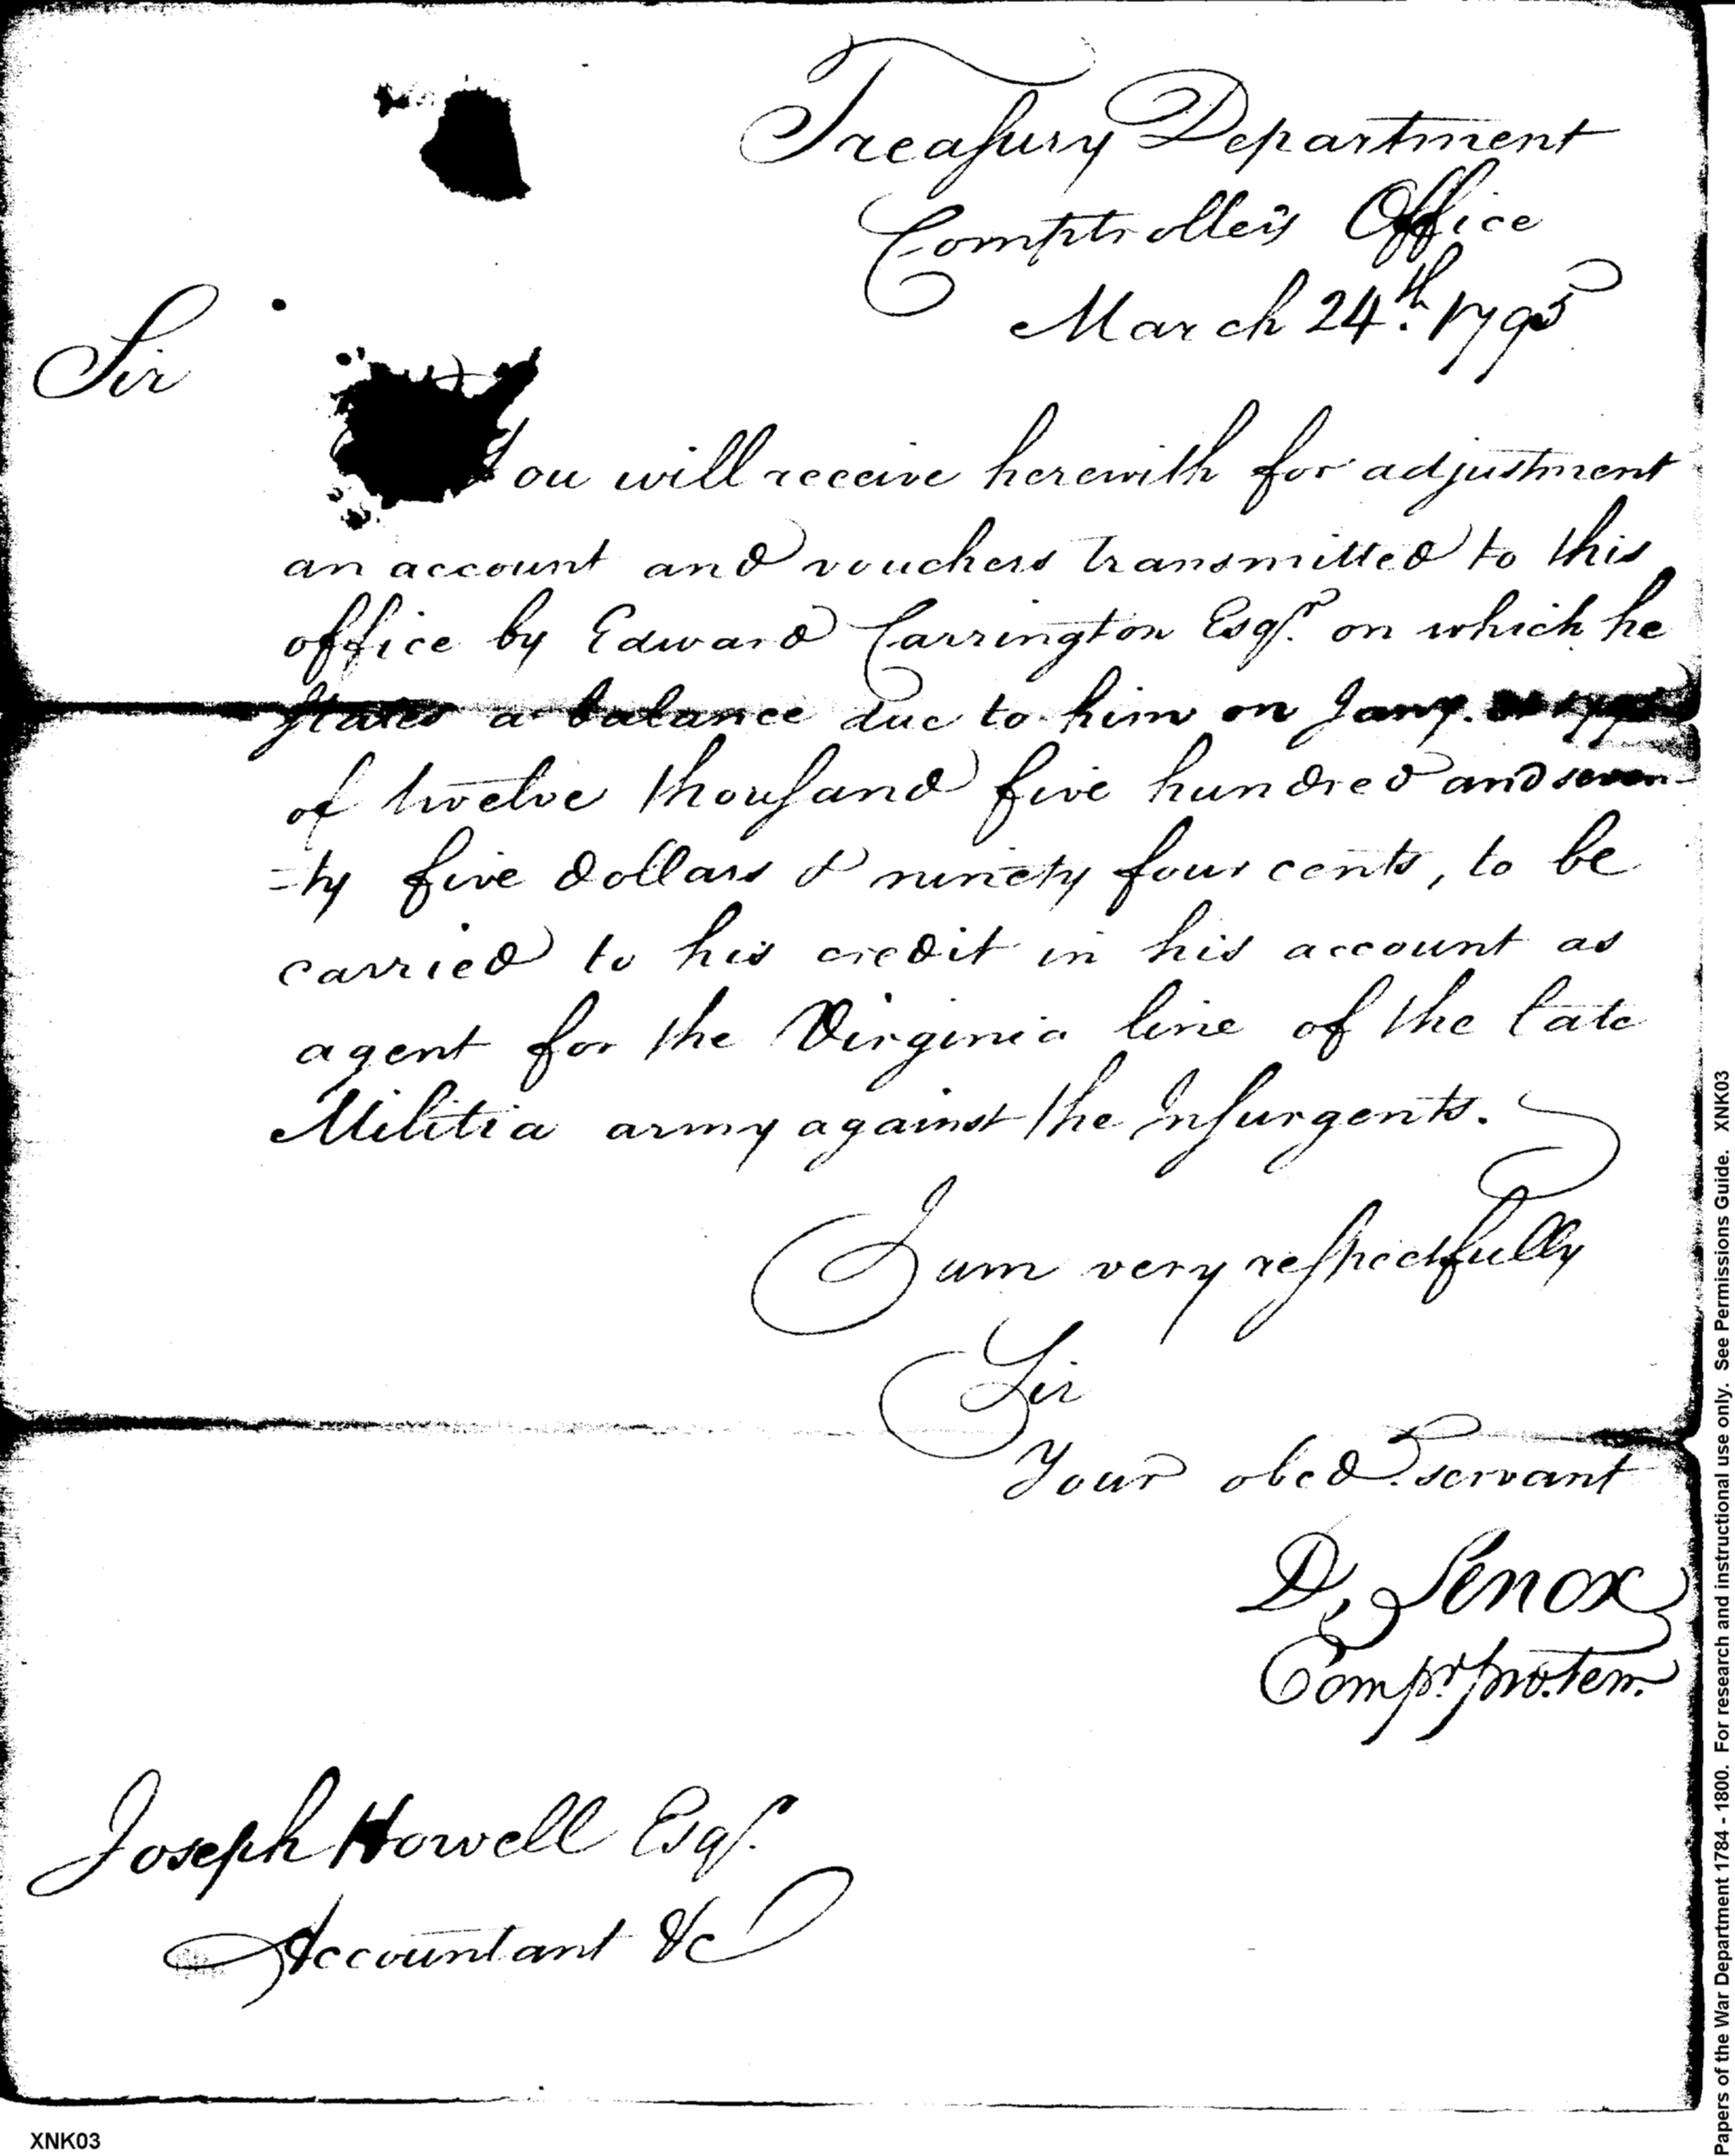 Treasury Department
Comptroller's Office
March 24th. 1795
Sir
You will receive herewith for adjustment
an account and vouchers transmitted to this
office by Edward Carrington Esqr. on which he
States a balance due to him on Jany.
of twelve thousand five hundred and seven-
-ty five dollars & ninety four cents, to be
carried to his credit in his account as
agent for the Virginia line of the late
Militia army against the Insurgents.
I am very respectfully
Sir
Your obed. servant
D, Lenox
Compr. pro. tem.
Joseph Howell Esqr.
Accountant &c
XNK03
Papers of the War Department 1784 - 1800. For research and instructional use only. See Permissions Guide. XNK03